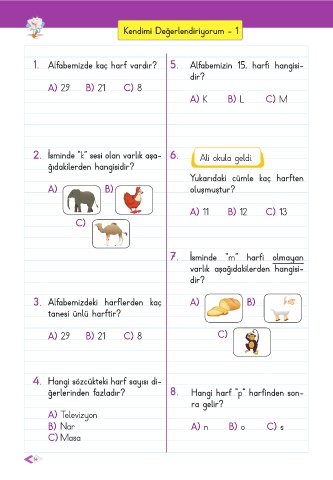 Kendimi Değerlendiriyorum - 1
1. Alfabemizde kaç harf vardır?
A) 29 B) 21 C) 8
2. İsminde "k" sesi olan varlık aşa-
ğıdakilerden hangisidir?
A) B)
C)
3. Alfabemizdeki harflerden kaç
tanesi ünlü harftir?
A) 29 B) 21 C) 8
4. Hangi sözcükteki harf sayısı di-
ğerlerinden fazladır?
A) Televizyon
B) Nar
C) Masa
5. Alfabemizin 15. harfi hangisi-
dir?
A) K B) L C) M
6. Ali okula geldi.
Yukarıdaki cümle kaç harften
oluşmuştur?
A) 11 B) 12 C) 13
7. İsminde "m" harfi olmayan
varlık aşağıdakilerden hangisi-
dir?
A) B)
C)
8. Hangi harf "p" harfinden son-
ra gelir?
A) n B) o C) s